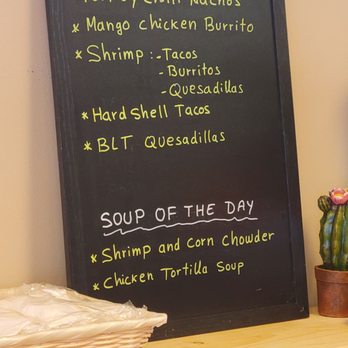 Chilli Nachos
* Mango chicken Burrito
* Shrimp :- Tacos
- Burritos
- Quesadillas
* Hard Shell Tacos
* BLT Quesadillas
SOUP OF THE DAY
* Shrimp and Corn Chowder
* Chicken Tortilla Soup